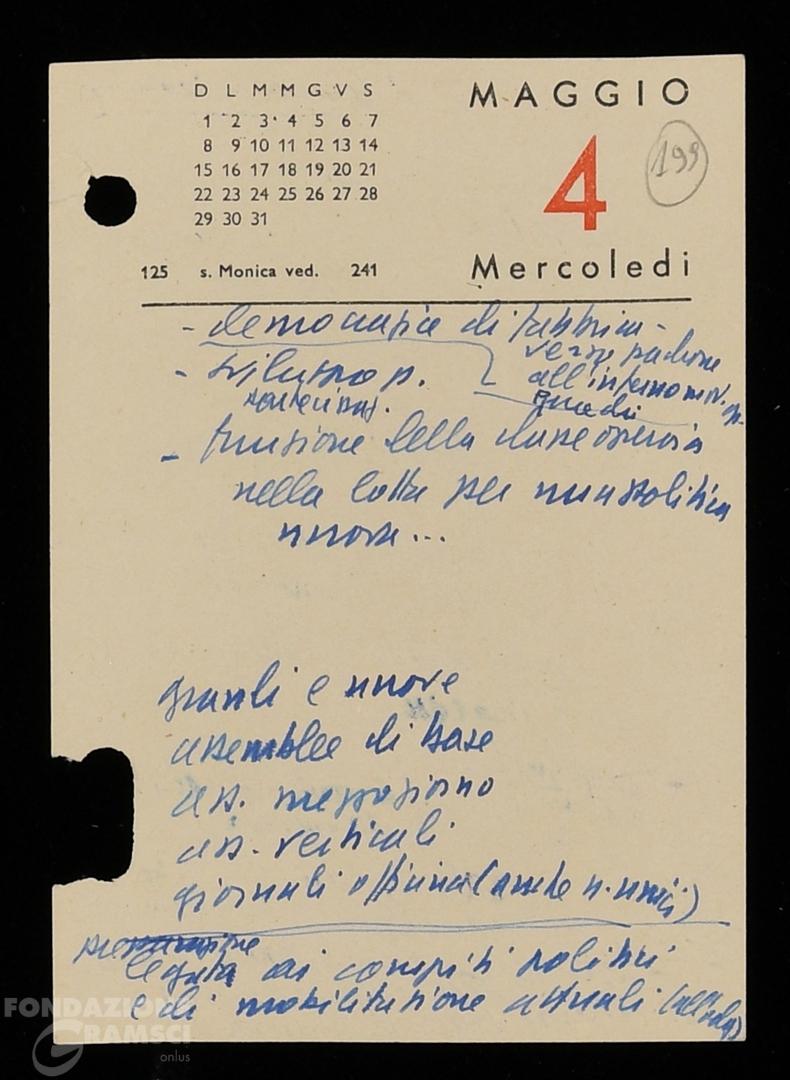 D L M M G V S
1 2 3 4 5 6 7
8 9 10 11 12 13 14
15 16 17 18 19 20 21
22 23 24 25 26 27 28
29 30 31
MAGGIO
4
199
125 s. Monica ved. 241
Mercoledi
- democrazia di fabbrica -
verso padrone
- sviluppo p. all'interno mov. op.
- funzione della classe operaia
nella lotta per una politica
nuova...
grandi e nuove
assemblee di base
ass. mezzogiorno
ass. verticali
giornali officina (anche n. unici)
legata ai compiti politici
e di mobilitazione attuali
FONDAZIONE
GRAMSCI
onlus